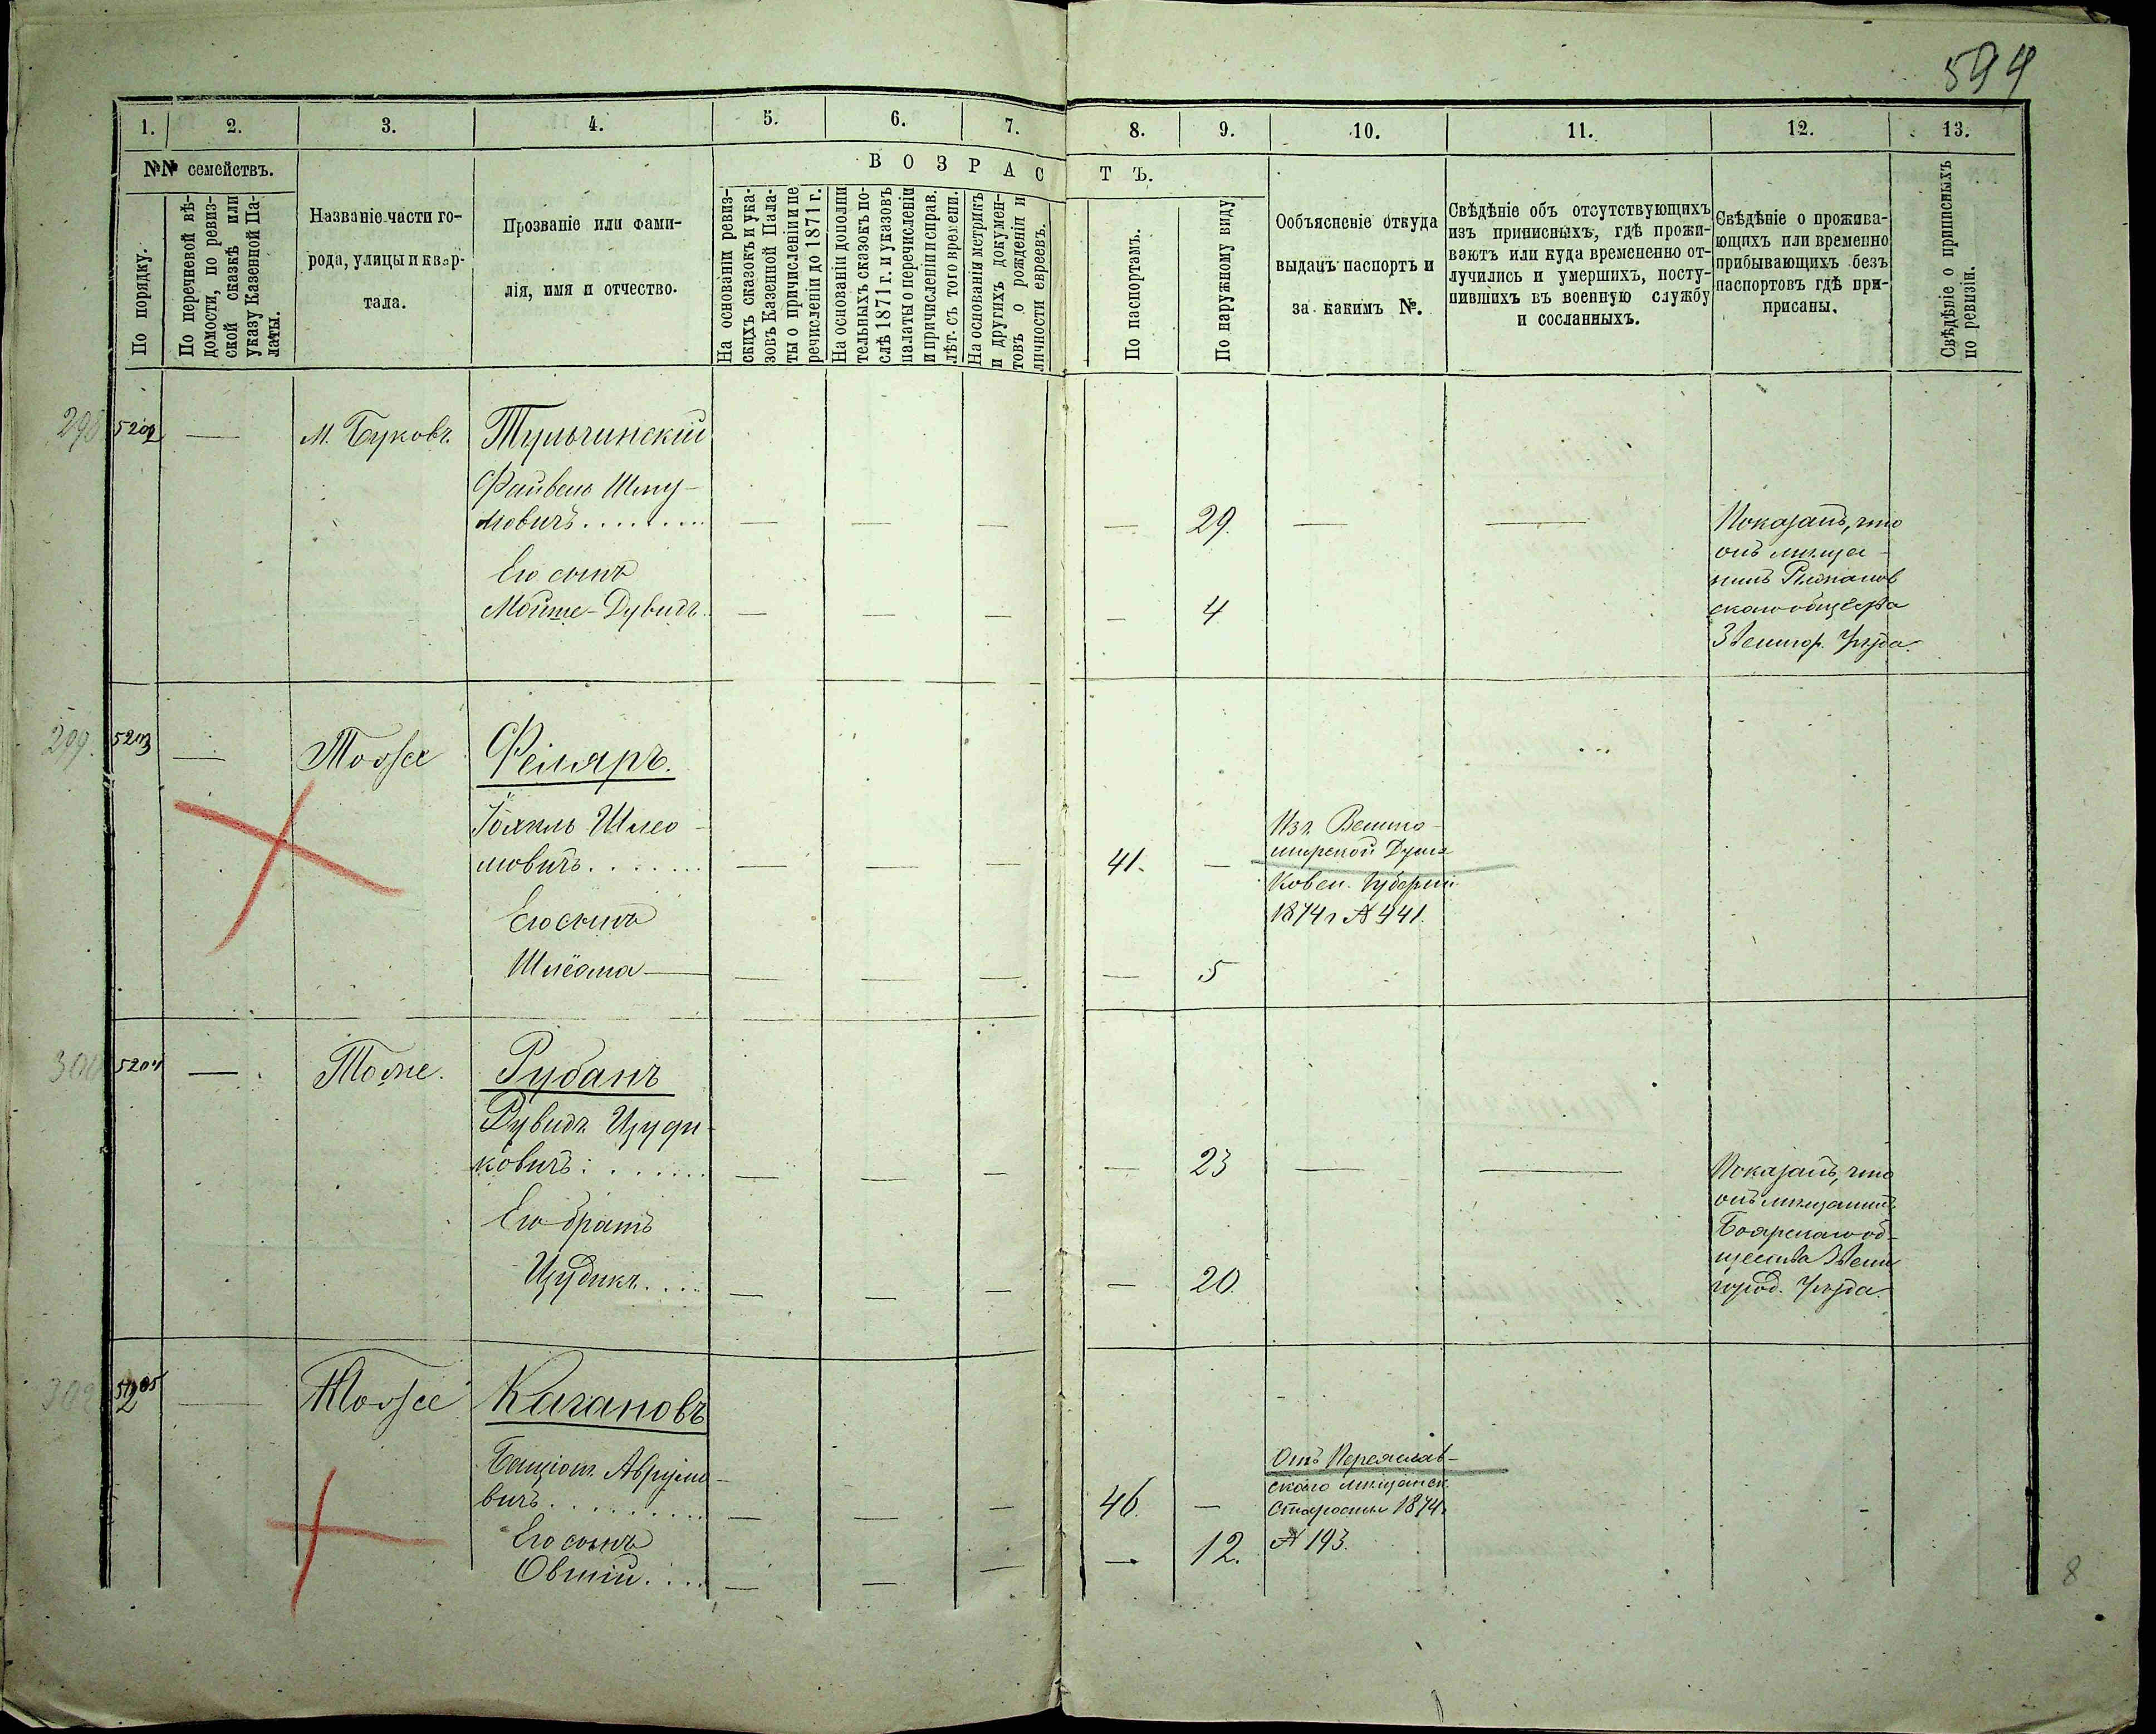 594
1. 2. 3. 4. 5. 6. 7. 8. 9. 10. 11. 12. 13.
№№ семействъ.
По порядку.
По перечневой вѣ-
домости, по ревиз-
ской сказкѣ или
указу Казенной Па-
латы.
Названіе части го-
рода, улицы и квар-
тала.
Прозваніе или Фами-
лія, имя и отчество.
ВОЗРАСТЪ.
На основаніи ревиз-
скихъ сказокъ и ука-
зовъ Казенной Пала-
ты о причисленіи и пе
речисленіи до 1871 г.
На основаніи дополни
тельныхъ сказокъ по-
слѣ 1871 г. и указовъ
палаты о перечисленіи
и причисленіи и справ.
лѣт. съ того времени.
На основаніи метрикъ
и другихъ докумен-
товъ о рожденіи и
личности евреевъ.
По паспортамъ.
По наружному виду
Ообъясненіе откуда
выдачъ паспортъ и
за какимъ №.
Свѣдѣніе объ отсутствующихъ
изъ приписныхъ, гдѣ прожи-
ваютъ или куда временно от-
лучились и умершихъ, посту-
пившихъ въ военную службу
и сосланныхъ.
Свѣдѣніе о прожива-
ющихъ или временно
прибывающихъ безъ
паспортовъ гдѣ при-
присаны.
Свѣдѣніе о приписныхъ
по ревизіи.
298 5202 — М. Буковъ. Тульчинскій
Файвель Шму-
левичъ........ — — — — 29. — — Показалъ, что
онъ мѣща-
нинъ Рижанов
скаго общества
Звенигор. Уѣзда.
Его сынъ
Мойше-Дувидъ. — — — — 4
299. 5203 — Тоже Фельяръ.
Іохиль Шлео-
мовичъ....... — — — 41. — Изъ Вилько-
мирской Думы
Ковен. Губерніи
1874 г № 441.
Его сынъ
Шлёома — — — — — 5
300 5204 — Тоже. Рубанъ
Дувидъ Цуди-
ковичъ....... — — — — 23 — — Показалъ, что
онъ мѣщанинъ
Боярскаго об-
щества Звени
город. Уѣзда.
Его братъ
Цудикъ.... — — — — 20.
302 5205 — Тоже Кагановъ
Бенціонъ Аврумо-
вичъ........ — — — 46. — Отъ Переяслав-
скаго мѣщанск.
Старосты 1874г
№ 193.
Его сынъ
Овшій.... — — — — 12.
8